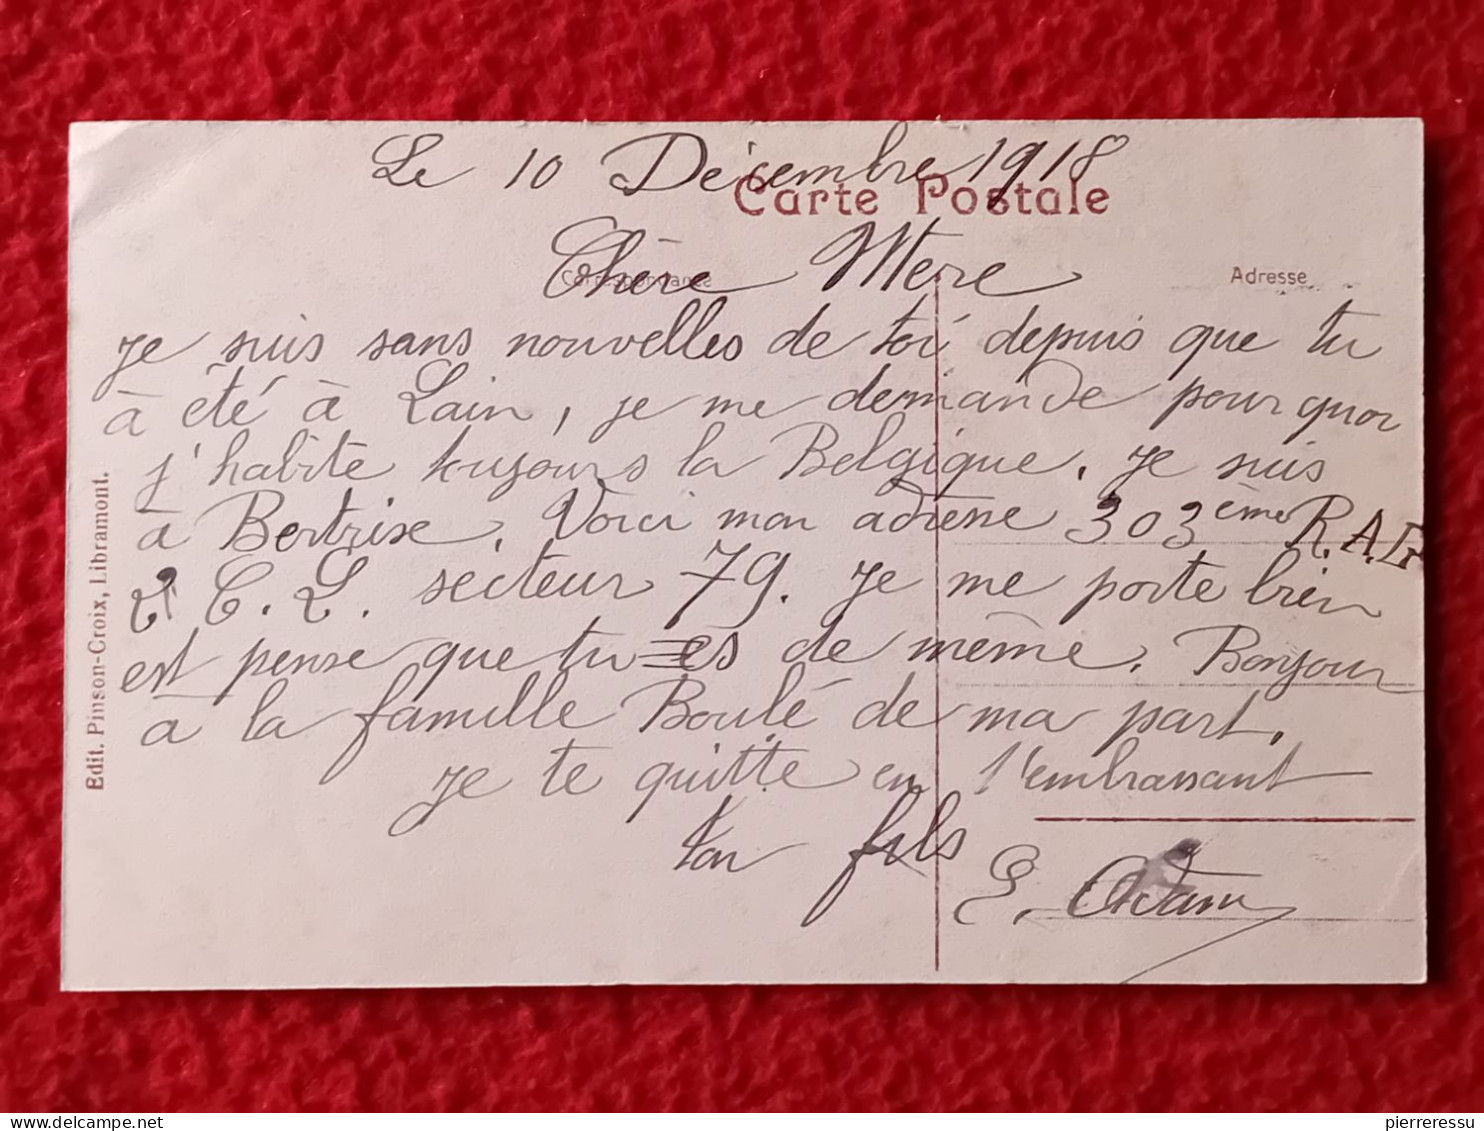 Le 10 Décembre 1918
Carte Postale
Chère Mere
Correspondance
Adresse
je suis sans nouvelles de toi depuis que tu
à été à Lain, je me demande pourquoi
j'habite toujours la Belgique. Je suis
à Bertrixe. Voici mon adresse 303ème R.A.
C.L. secteur 79. Je me porte bien
est pense que tu es de même. Bonjour
à la famille Boulé de ma part.
Je te quitte en t'embrassant
ton fils
E. Adam
Edit. Pinson-Croix, Libramont.
delcampe.net
pierreressu